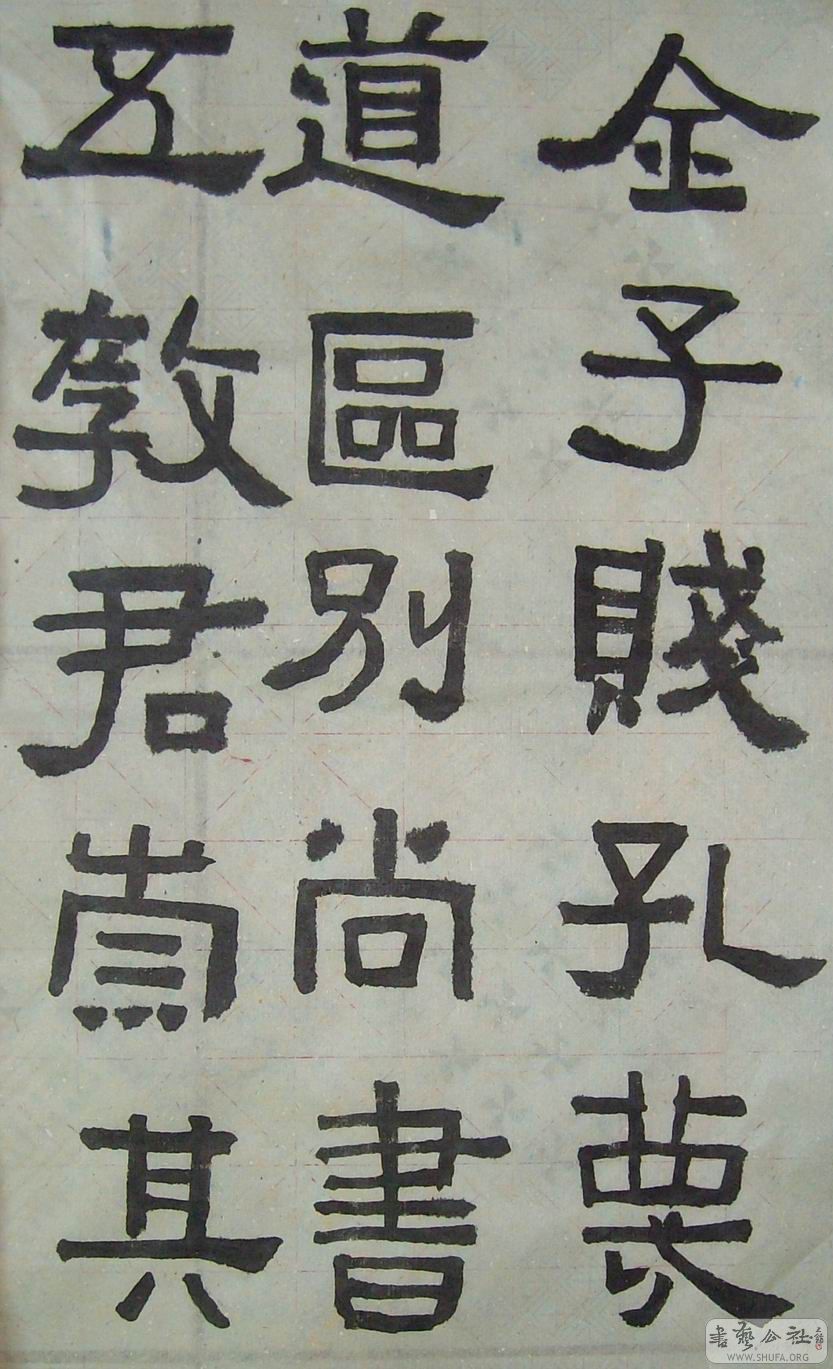 全子賤孔蔑
道區別尚書
五教君崇其
书艺公社
WWW.SHUFA.ORG